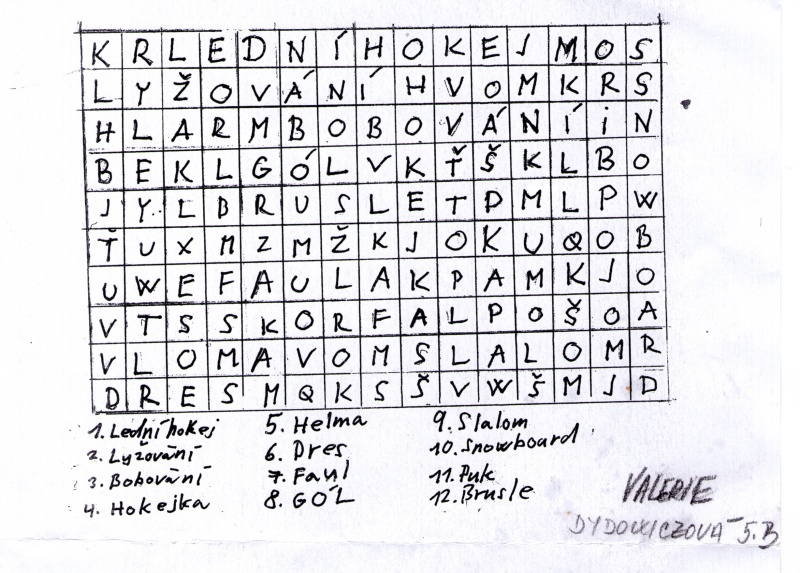 K R L E D N Í H O K E J M O S
L Y Ž O V Á N Í H V O M K R S
H L A R M B O B O V Á N Í i N
B E K L G Ó L V K Ť Š K L B O
J Y L B R U S L E T P M L P W
Ť U X M Z M Ž K J O K U Q O B
U W E F A U L A K P A M K J O
V T S S K O R F A L P O Š O A
V L O M A V O M S L A L O M R
D R E S M Q K S Š V W Š M J D
1. Lední hokej 5. Helma 9. Slalom
2. Lyžování 6. Dres 10. Snowboard
3. Bobování 7. Faul 11. Puk
4. Hokejka 8. GÓL 12. Brusle
VALERIE
DYDOWICZOVÁ 5.B